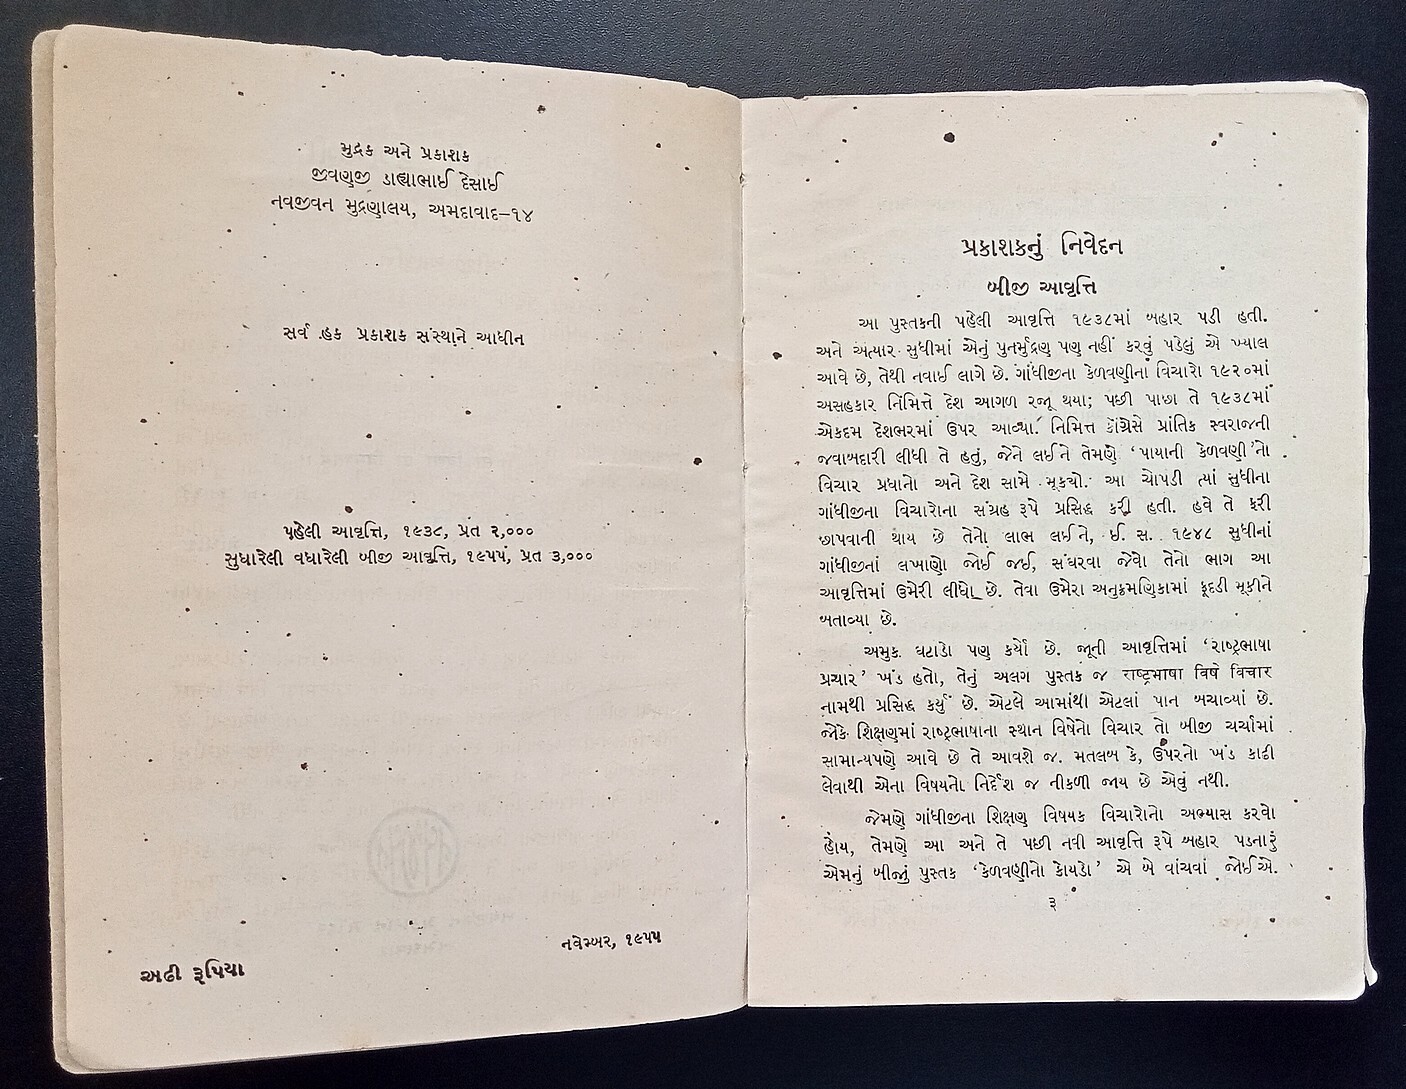 મુદ્રક અને પ્રકાશક
જીવણજી ડાહ્યાભાઈ દેસાઈ
નવજીવન મુદ્રણાલય, અમદાવાદ–૧૪
સર્વ હક પ્રકાશક સંસ્થાને આધીન
પહેલી આવૃત્તિ, ૧૯૩૮, પ્રત ૨,૦૦૦
સુધારેલી વધારેલી બીજી આવૃત્તિ, ૧૯૫૫, પ્રત ૩,૦૦૦
અઢી રૂપિયા
નવેમ્બર, ૧૯૫૫
પ્રકાશકનું નિવેદન
બીજી આવૃત્તિ
આ પુસ્તકની પહેલી આવૃત્તિ ૧૯૩૮માં બહાર પડી હતી.
અને અત્યાર સુધીમાં એનું પુનર્મુદ્રણ પણ નહીં કરવું પડેલું એ ખ્યાલ
આવે છે, તેથી નવાઈ લાગે છે. ગાંધીજીના કેળવણીના વિચારો ૧૯૨૦માં
અસહકાર નિમિત્તે દેશ આગળ રજૂ થયા; પછી પાછા તે ૧૯૩૮માં
એકદમ દેશભરમાં ઉપર આવ્યા. નિમિત્ત કૉંગ્રેસે પ્રાંતિક સ્વરાજની
જવાબદારી લીધી તે હતું, જેને લઈને તેમણે ‘પાયાની કેળવણી’નો
વિચાર પ્રધાનો અને દેશ સામે મૂક્યો. આ ચોપડી ત્યાં સુધીના
ગાંધીજીના વિચારોના સંગ્રહ રૂપે પ્રસિદ્ધ કરી હતી. હવે તે ફરી
છાપવાની થાય છે તેનો લાભ લઈને, ઈ. સ. ૧૯૪૮ સુધીનાં
ગાંધીજીનાં લખાણો જોઈ જઈ, સંઘરવા જેવો તેનો ભાગ આ
આવૃત્તિમાં ઉમેરી લીધો છે. તેવા ઉમેરા અનુક્રમણિકામાં ફૂદડી મૂકીને
બતાવ્યા છે.
અમુક ઘટાડો પણ કર્યો છે. જૂની આવૃત્તિમાં ‘રાષ્ટ્રભાષા
પ્રચાર’ ખંડ હતો, તેનું અલગ પુસ્તક જ રાષ્ટ્રભાષા વિષે વિચાર
નામથી પ્રસિદ્ધ કર્યું છે. એટલે આમાંથી એટલાં પાન બચાવ્યાં છે.
જોકે શિક્ષણમાં રાષ્ટ્રભાષાના સ્થાન વિષેનો વિચાર તો બીજી ચર્ચામાં
સામાન્યપણે આવે છે તે આવશે જ. મતલબ કે, ઉપરનો ખંડ કાઢી
લેવાથી એના વિષયનો નિર્દેશ જ નીકળી જાય છે એવું નથી.
જેમણે ગાંધીજીના શિક્ષણ વિષયક વિચારોનો અભ્યાસ કરવો
હોય, તેમણે આ અને તે પછી નવી આવૃત્તિ રૂપે બહાર પડનારું
એમનું બીજું પુસ્તક ‘કેળવણીનો કોયડો’ એ બે વાંચવાં જોઈએ.
૩